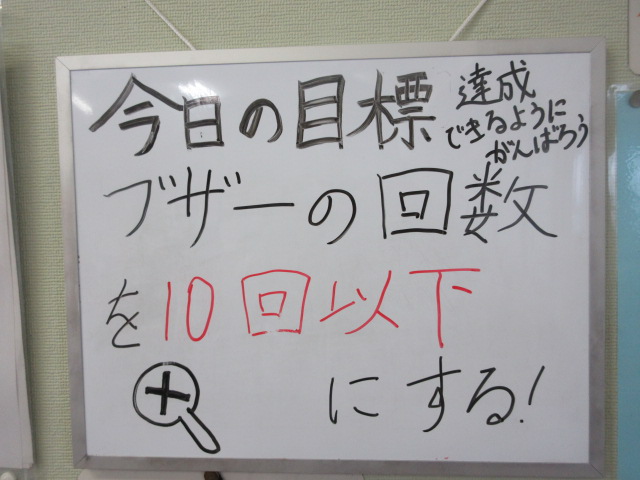 今日の目標
達成
できるように
がんばろう
ブザーの回数
を10回以下
にする!